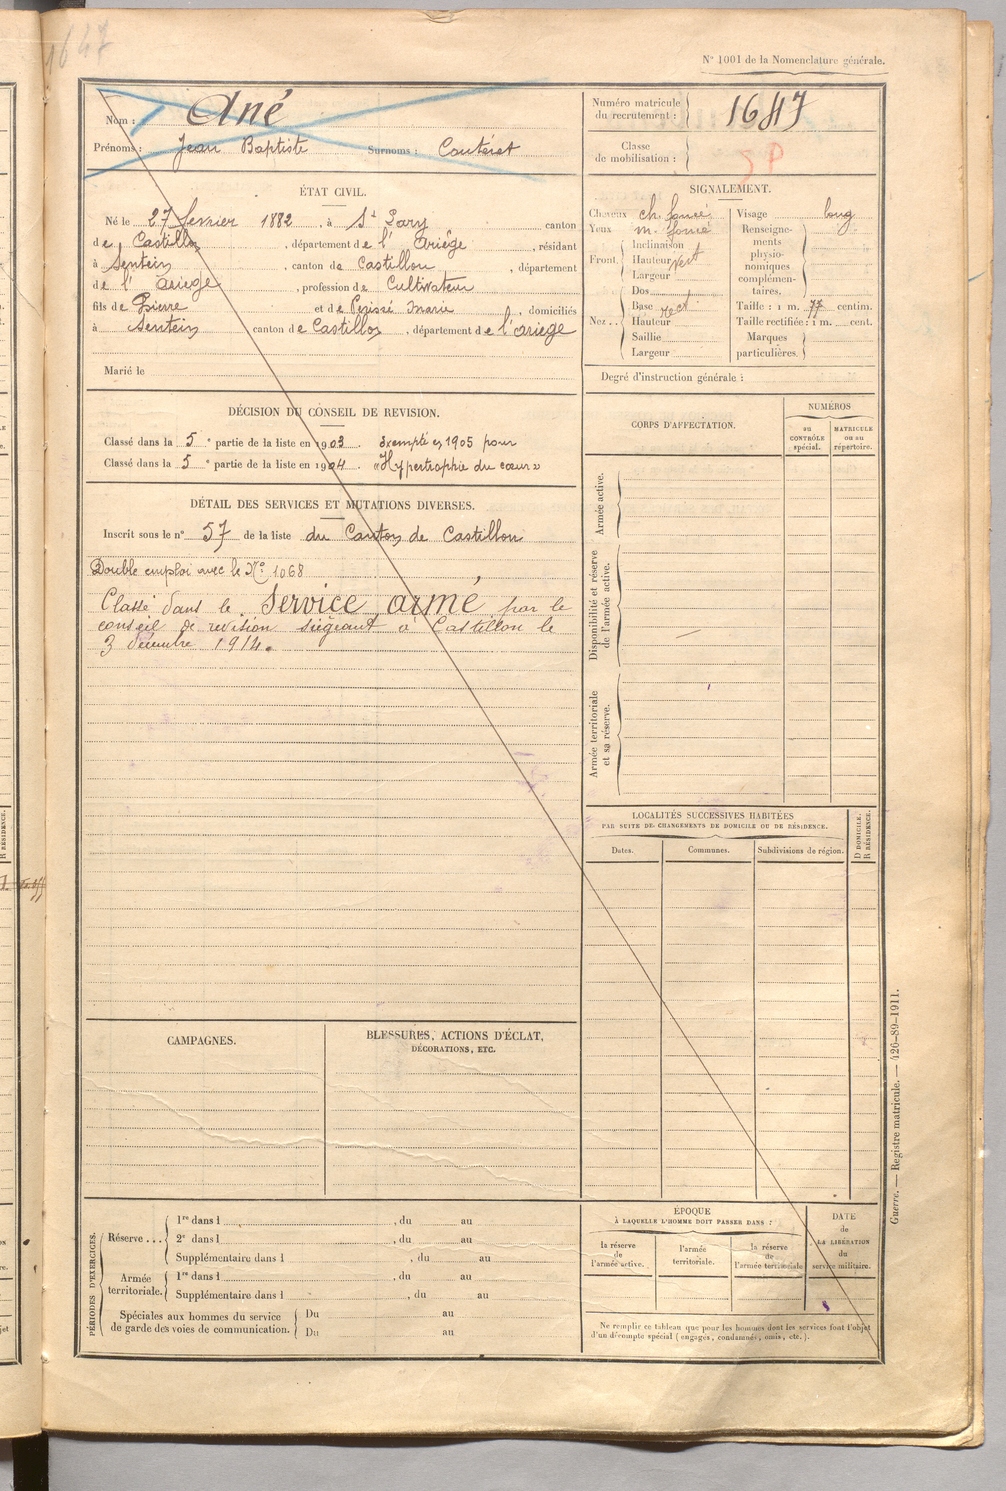 1647
N° 1001 de la Nomenclature générale.
Nom : Ané
Prénoms : Jean Baptiste Surnoms : Coutéret
Numéro matricule du recrutement : 1647
Classe de mobilisation : SP
ÉTAT CIVIL.
Né le 27 fevrier 1882, à St Lary canton
de Castillon, département de l' Ariège, résidant
à Sentein, canton de Castillon, département
de l' Ariege, profession de Cultivateur
fils de Pierre et de Marie, domiciliés
à Sentein canton de Castillon, département de l'Ariege
Marié le
SIGNALEMENT.
Cheveux ch. foncé
Yeux m. foncé
Front. Inclinaison
Hauteur vert
Largeur
Nez... Dos
Base rect
Hauteur
Saillie
Largeur
Visage long
Renseignements physionomiques complémentaires.
Taille : 1 m. 77 centim.
Taille rectifiée : 1 m. cent.
Marques particulières.
Degré d'instruction générale :
DÉCISION DU CONSEIL DE REVISION.
Classé dans la 5e partie de la liste en 1903. Exempté en 1905 pour
Classé dans la 5e partie de la liste en 1904. «Hypertrophie du cœur»
DÉTAIL DES SERVICES ET MUTATIONS DIVERSES.
Inscrit sous le n° 57 de la liste du Canton de Castillon
Double emploi avec le No: 1068
Classé dans le Service armé par le
conseil de revision siégeant à Castillon le
3 décembre 1914.
CORPS D'AFFECTATION.
NUMÉROS
au CONTRÔLE spécial.
MATRICULE ou au répertoire.
Armée active.
Disponibilité et réserve de l'armée active.
Armée territoriale et sa réserve.
LOCALITÉS SUCCESSIVES HABITÉES
PAR SUITE DE CHANGEMENTS DE DOMICILE OU DE RÉSIDENCE.
Dates.
Communes.
Subdivisions de région.
D DOMICILE.
R RÉSIDENCE.
CAMPAGNES.
BLESSURES, ACTIONS D'ÉCLAT,
DÉCORATIONS, ETC.
PÉRIODES D'EXERCICES.
Réserve ... 1re dans l , du au
2e dans l , du au
Supplémentaire dans l , du au
Armée territoriale. 1re dans l , du au
Supplémentaire dans l , du au
Spéciales aux hommes du service Du au
de garde des voies de communication. Du au
ÉPOQUE
À LAQUELLE L'HOMME DOIT PASSER DANS :
la réserve de l'armée active.
l'armée territoriale.
la réserve de l'armée territoriale
DATE
de
LA LIBÉRATION
du
service militaire.
Ne remplir ce tableau que pour les hommes dont les services font l'objet
d'un décompte spécial (engagés, condamnés, omis, etc.).
Guerre. — Registre matricule. — 426-89-1911.